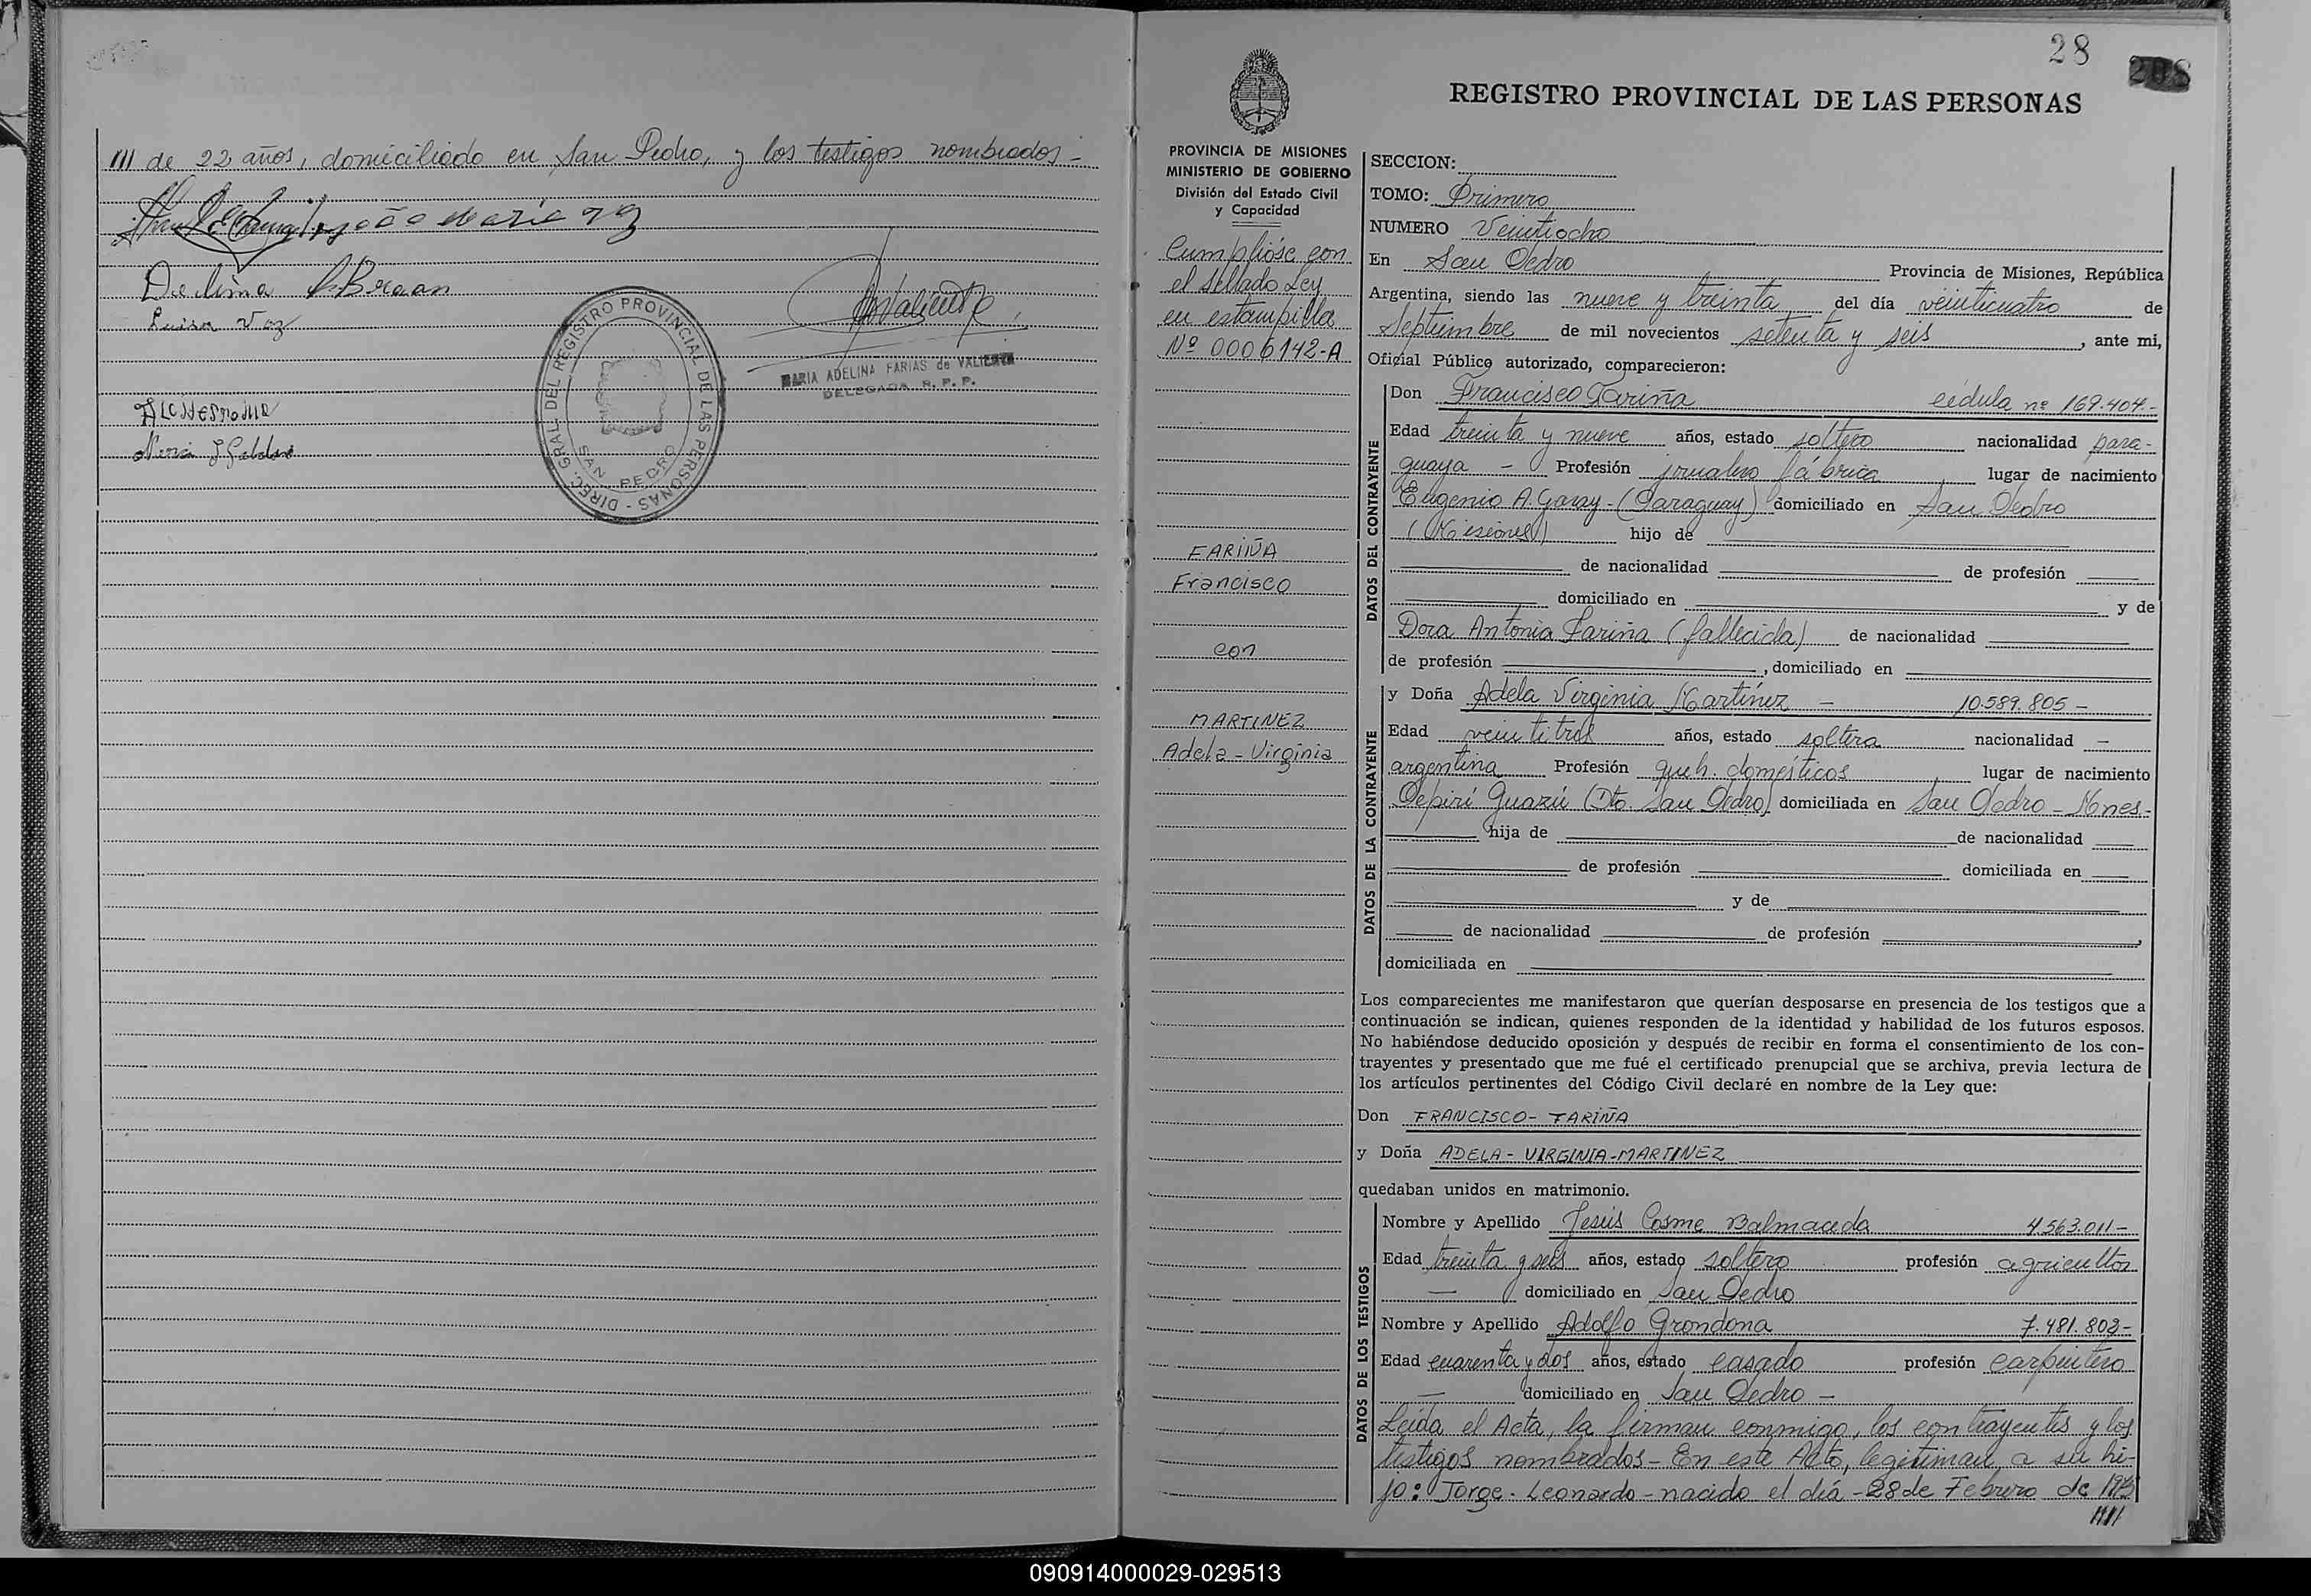 /// de 22 años, domiciliado en San Pedro, y los testigos nombrados -
Luisa Vaz
MARIA ADELINA FARIAS de VALIENTE
DELEGADA R. P. P.
DIREC. GRAL. DEL REGISTRO PROVINCIAL DE LAS PERSONAS -
SAN PEDRO
28
REGISTRO PROVINCIAL DE LAS PERSONAS
PROVINCIA DE MISIONES
MINISTERIO DE GOBIERNO
División del Estado Civil
y Capacidad
Cumplióse con
el sellado Ley
en estampilla
Nº 0006142-A
FARIÑA
Francisco
con
MARTINEZ
Adela - Virginia
SECCION:
TOMO: Primero
NUMERO Veintiocho
En San Pedro Provincia de Misiones, República
Argentina, siendo las nueve y treinta del día veinticuatro de
Septiembre de mil novecientos setenta y seis, ante mi,
Oficial Público autorizado, comparecieron:
DATOS DEL CONTRAYENTE
Don Francisco Fariña cédula nº 169.404.-
Edad treinta y nueve años, estado soltero nacionalidad para-
guaya - Profesión jornalero fábrica lugar de nacimiento
Eugenio A. Garay - (Paraguay) domiciliado en San Pedro
(Misiones) hijo de
de nacionalidad de profesión
domiciliado en y de
Dora Antonia Fariña (fallecida) de nacionalidad
de profesión , domiciliado en
DATOS DE LA CONTRAYENTE
y Doña Adela Virginia Martínez - 10.589.805 -
Edad veintitrés años, estado soltera nacionalidad -
argentina Profesión queh. domésticos lugar de nacimiento
Pepirí Guazú (Dto. San Pedro) domiciliada en San Pedro - Mnes.-
hija de de nacionalidad
de profesión domiciliada en
y de
de nacionalidad de profesión ,
domiciliada en
Los comparecientes me manifestaron que querían desposarse en presencia de los testigos que a
continuación se indican, quienes responden de la identidad y habilidad de los futuros esposos.
No habiéndose deducido oposición y después de recibir en forma el consentimiento de los con-
trayentes y presentado que me fué el certificado prenupcial que se archiva, previa lectura de
los artículos pertinentes del Código Civil declaré en nombre de la Ley que:
Don FRANCISCO - FARIÑA
y Doña ADELA - VIRGINIA - MARTINEZ
quedaban unidos en matrimonio.
DATOS DE LOS TESTIGOS
Nombre y Apellido Jesús Cosme Balmaceda 4.563.011 -
Edad treinta y seis años, estado soltero profesión agricultor
- domiciliado en San Pedro
Nombre y Apellido Adolfo Grondona 7.481.802 -
Edad cuarenta y dos años, estado casado profesión carpintero
- domiciliado en San Pedro -
Leída el Acta, la firman conmigo, los contrayentes y los
testigos nombrados - En este Acto, legitiman a su hi-
jo: Jorge - Leonardo - nacido el día - 28 de Febrero de
////
090914000029-029513